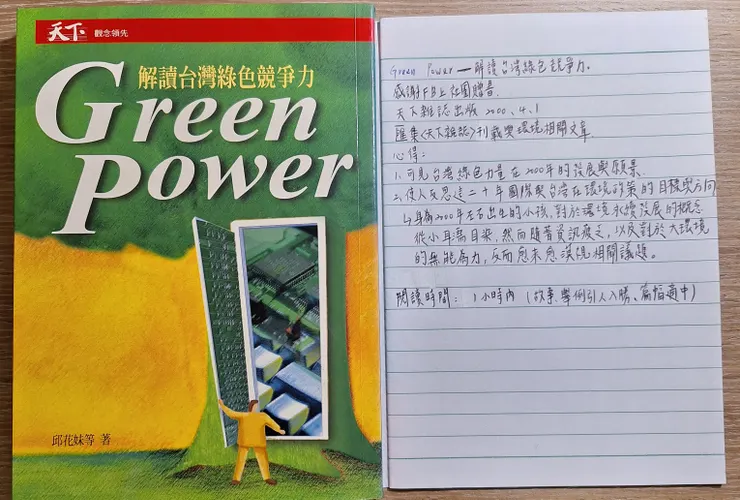 天下
觀念領先
解讀台灣綠色競爭力
Green
Power
邱花妹等 著
Green Power — 解讀台灣綠色競爭力。
感謝FB上社團贈書
天下雜誌出版 2000、4.1
匯集《天下雜誌》刊載與環境相關文章
心得:
1. 可見台灣綠色力量在2000年的發展與願景
2. 使人反思這二十年國際與台灣在環境政策的目標與方向
身為2000年左右出生的小孩,對於環境永續發展的概念
從小耳濡目染,然而隨著資訊疲乏,以及對於大環境
的無能為力,反而愈來愈漠視相關議題。
閱讀時間: 1小時內 (故事、舉例引人入勝、篇幅適中)